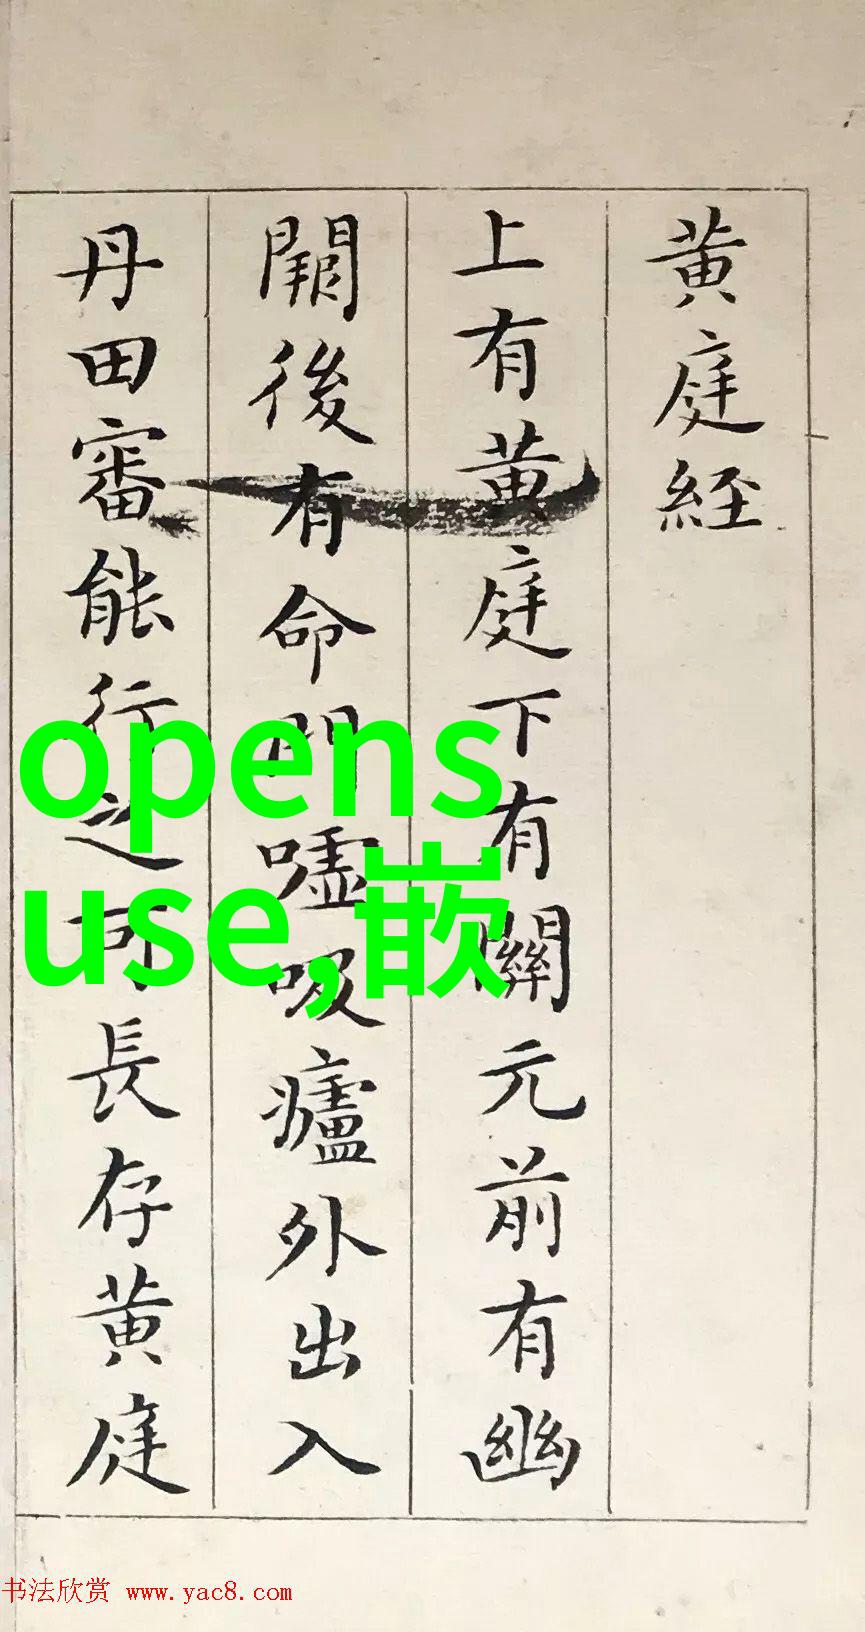 黄庭經
上有黄庭下有關元前有幽
闕後有命門嘘吸廬外出入
丹田審能行之可長存黄庭
opens
use,嵌
书法欣赏 www.yac8.com